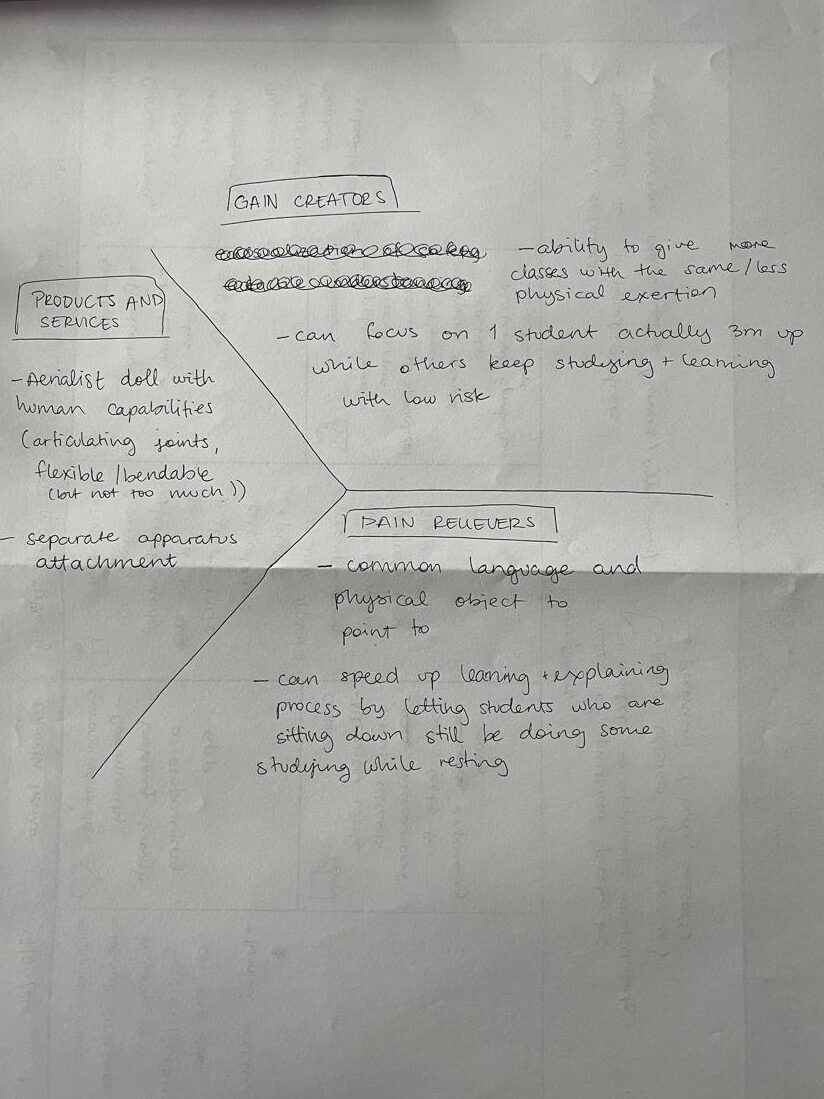 GAIN CREATORS
- ability to give more
classes with the same/less
physical exertion
- can focus on 1 student actually 3m up
while others keep studying + learning
with low risk
PRODUCTS AND
SERVICES
- Aerialist doll with
human capabilities
(articulating joints,
flexible/bendable
(but not too much))
- separate apparatus
attachment
PAIN RELIEVERS
- common language and
physical object to
point to
- can speed up learning + explaining
process by letting students who are
sitting down still be doing some
studying while resting